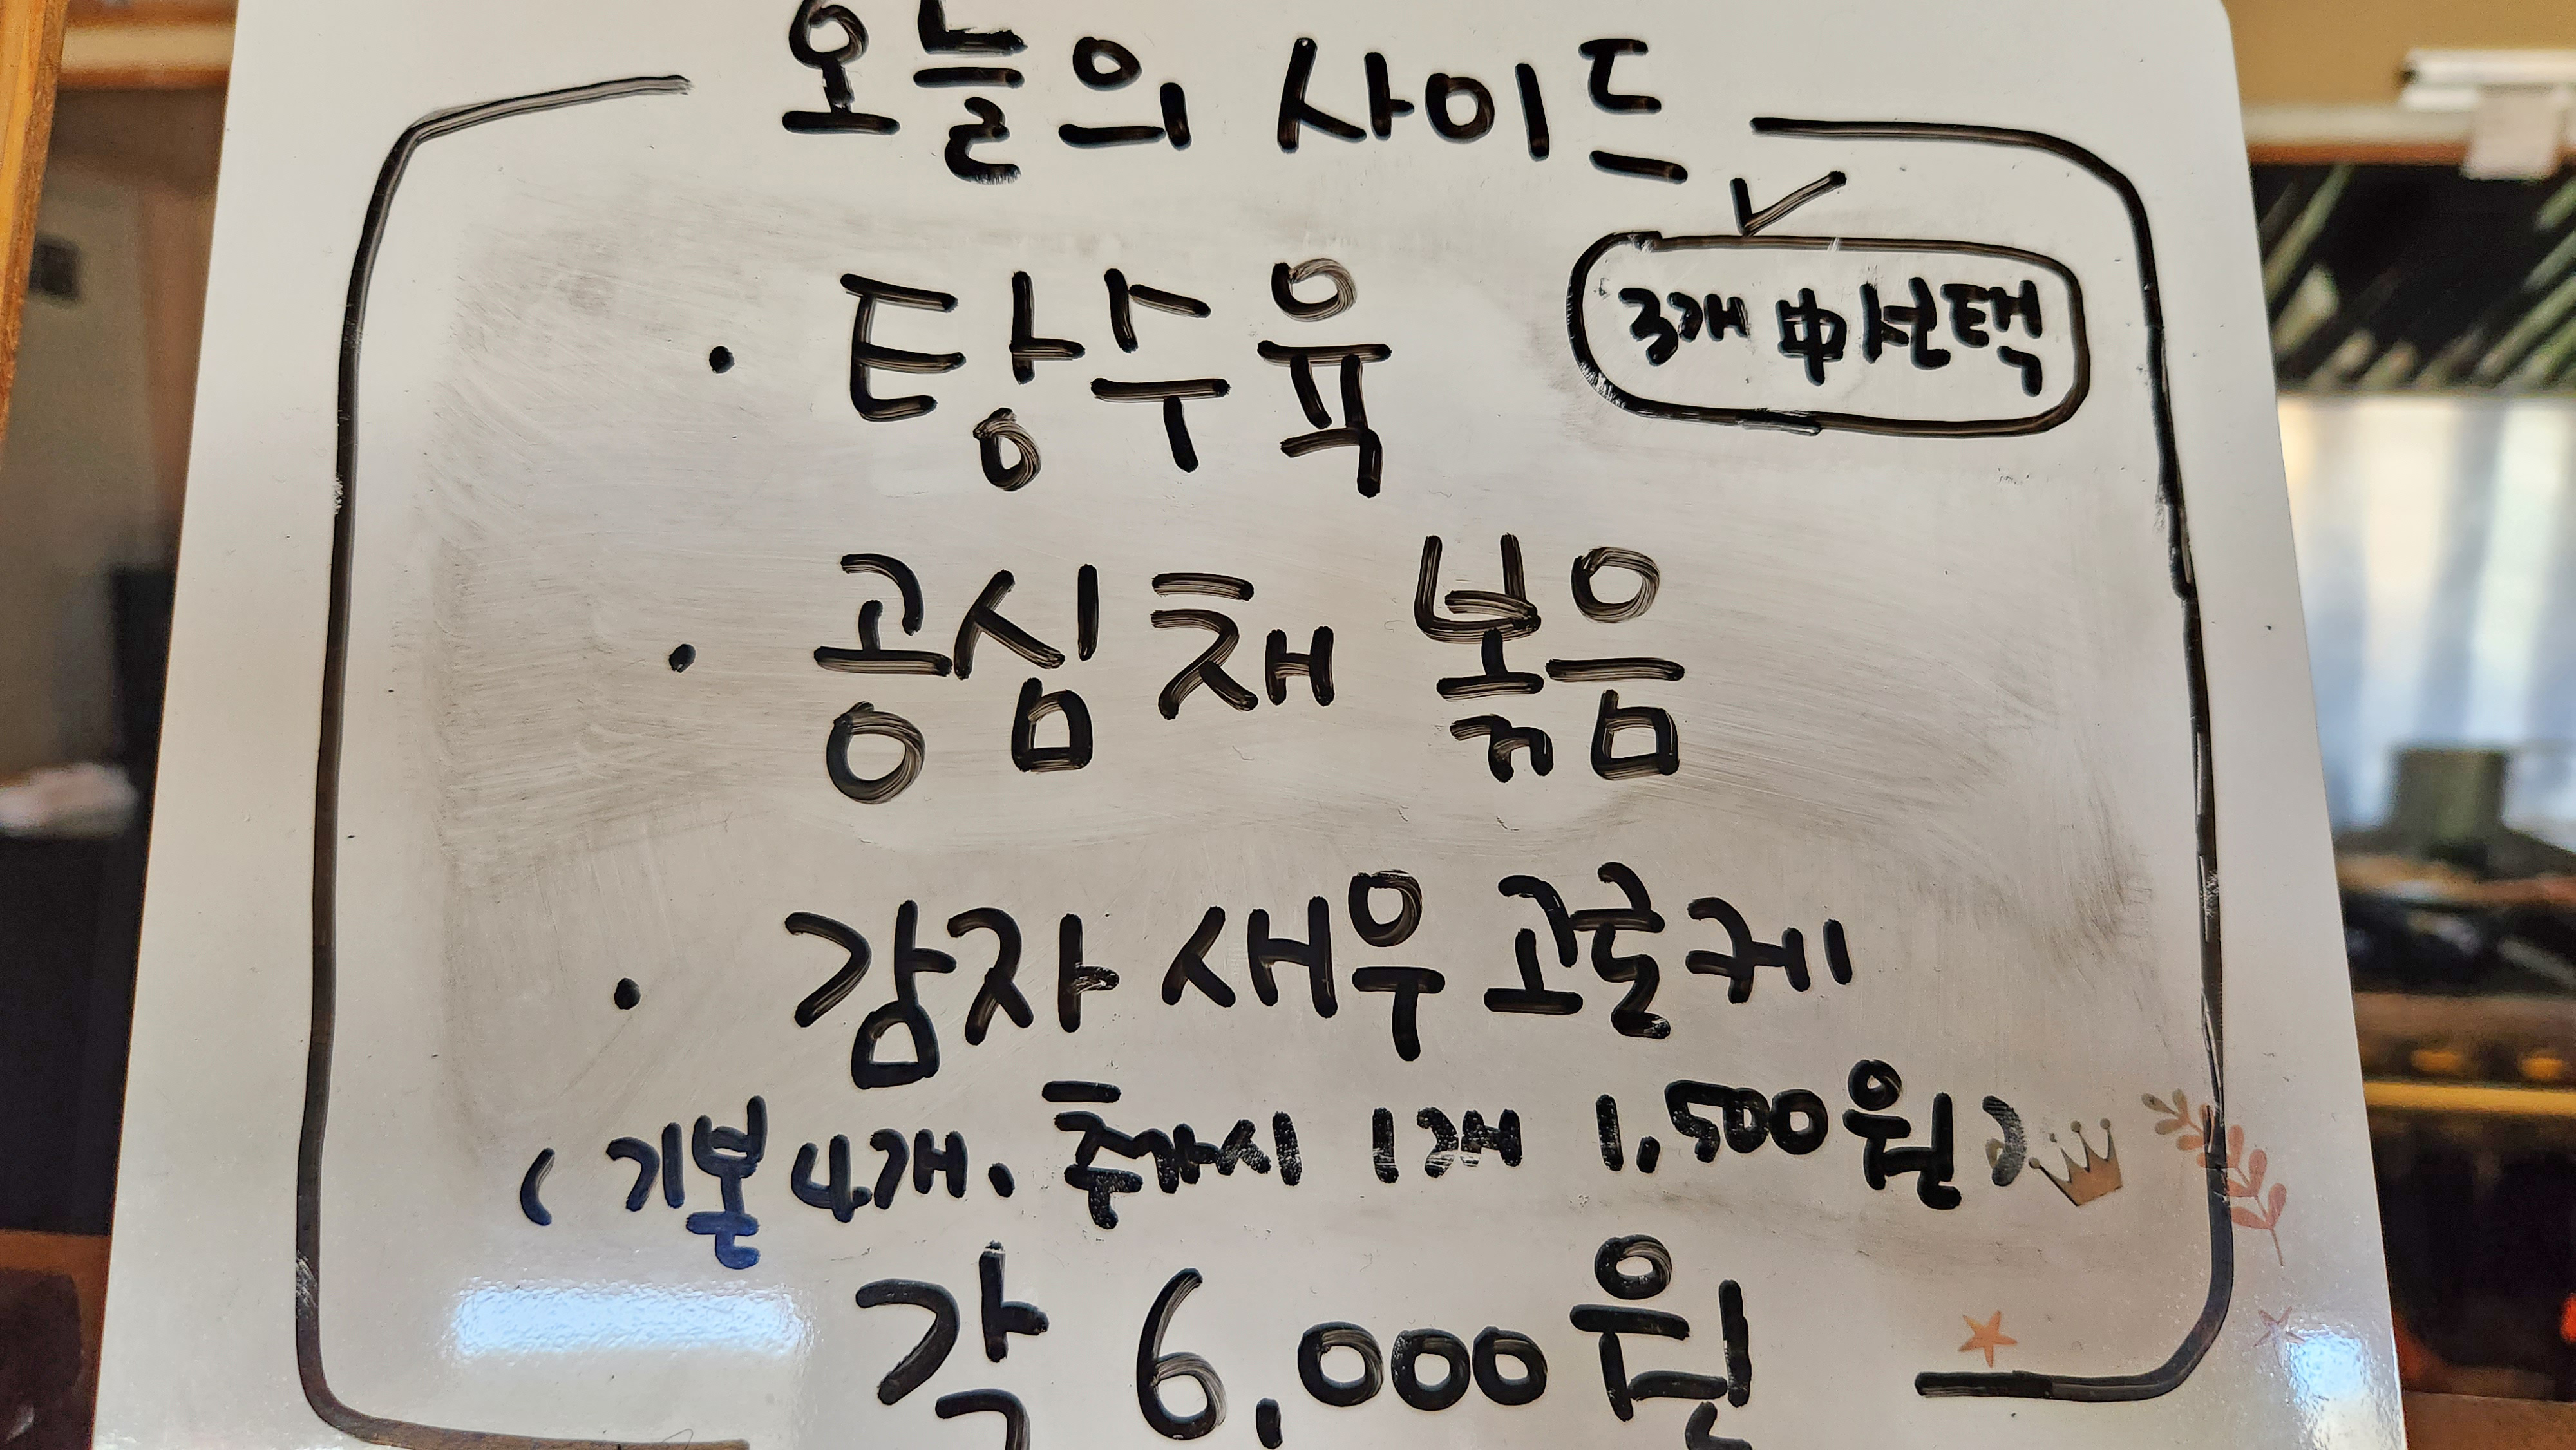 오늘의 사이드
3개 中 선택
· 탕수육
· 공심채 볶음
· 감자 새우 고로케
( 기본 4개, 추가시 1개 1,500원 )
각 6,000원